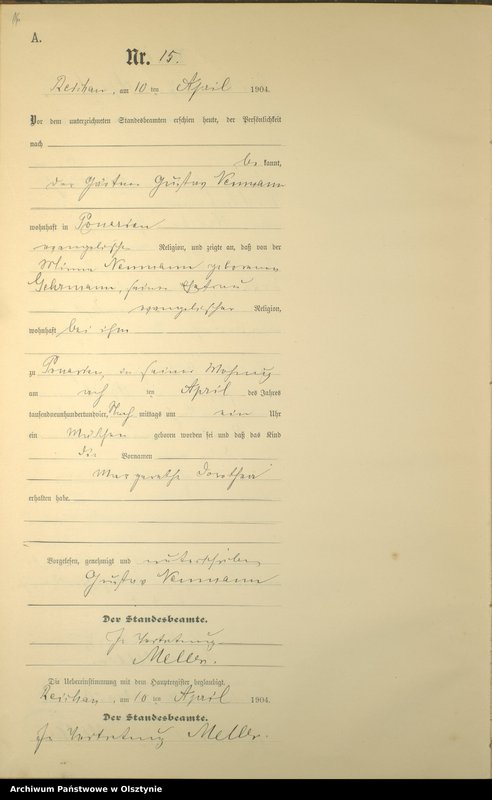 A.
Nr. 15.
Reichau, am 10 ten April 1904.
Vor dem unterzeichneten Standesbeamten erschien heute, der Persönlichkeit
nach
be kannt,
der Gärtner Gustav Neumann
wohnhaft in Ponarien
evangelischer Religion, und zeigte an, daß von der
Minna Neumann geborenen
Gehrmann, seiner Ehefrau
evangelischer Religion,
wohnhaft bei ihm
zu Ponarien, in seiner Wohnung
am ten April des Jahres
tausendneunhundertundvier, Nach mittags um ein Uhr
ein Mädchen geboren worden sei und daß das Kind
die Vornamen
Margarethe Dorothea
erhalten habe.
Vorgelesen, genehmigt und unterschrieben
Gustav Neumann
Der Standesbeamte.
In Vertretung
Meller.
Die Uebereinstimmung mit dem Hauptregister beglaubigt.
Reichau, am 10 ten April 1904.
Der Standesbeamte.
In Vertretung Meller.
Archiwum Państwowe w Olsztynie